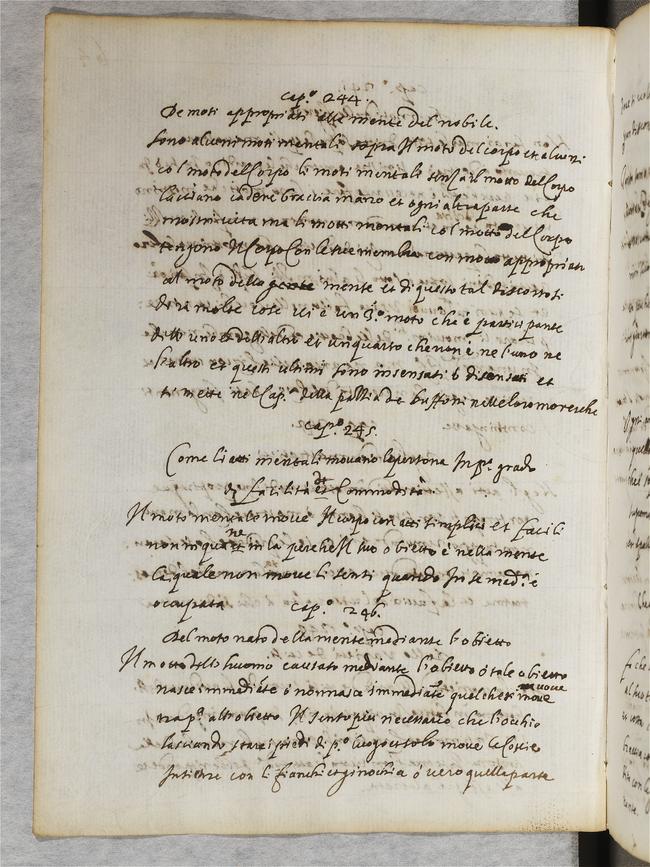 cap.º 244.
De moti appropriati alla mente del nobile.
Sono alcuni moti mentali sopra Il moto del corpo et alcuni
col moto del Corpo li moti mentali senza il motto del Corpo
lasciano cadere braccia mano et ogni altra parte che
mostri vita ma li moti mentali col motto del Corpo
tengono Il Corpo Con le sue membra con moto appropriati
al moto della mente et di questo tal discorso si
dirà molte cose ui è un 3.º moto che è participante
dell uno et dell altro et un quarto che non è ne l'uno ne
l'altro et questi ultimi sono insensati o disensati et
si mette nel Cap.º della pazzia de buffoni nelle loro moresche
cap.º 245.
Come li atti mentali movano la persona In p.º grado
di facilità et Commodità
Il moto mentale move Il corpo con atti simplici et facili
non in qua ne in la perche Il suo obietto è nella mente
la quale non move li senti quando In se med.ª è
occupata
cap.º 246.
Del moto nato della mente mediante l'obietto
Il motto dello huomo causato mediante l'obietto o tale obietto
nasce immediate o non nasce immediate quel che si move
tra p.ª al obietto Il sento piu necessario che l'occhio
lasciando stare i piedi di p.º luogo et solo move le Coscie
Insieme con li fianchi et ginochia o vero quella parte